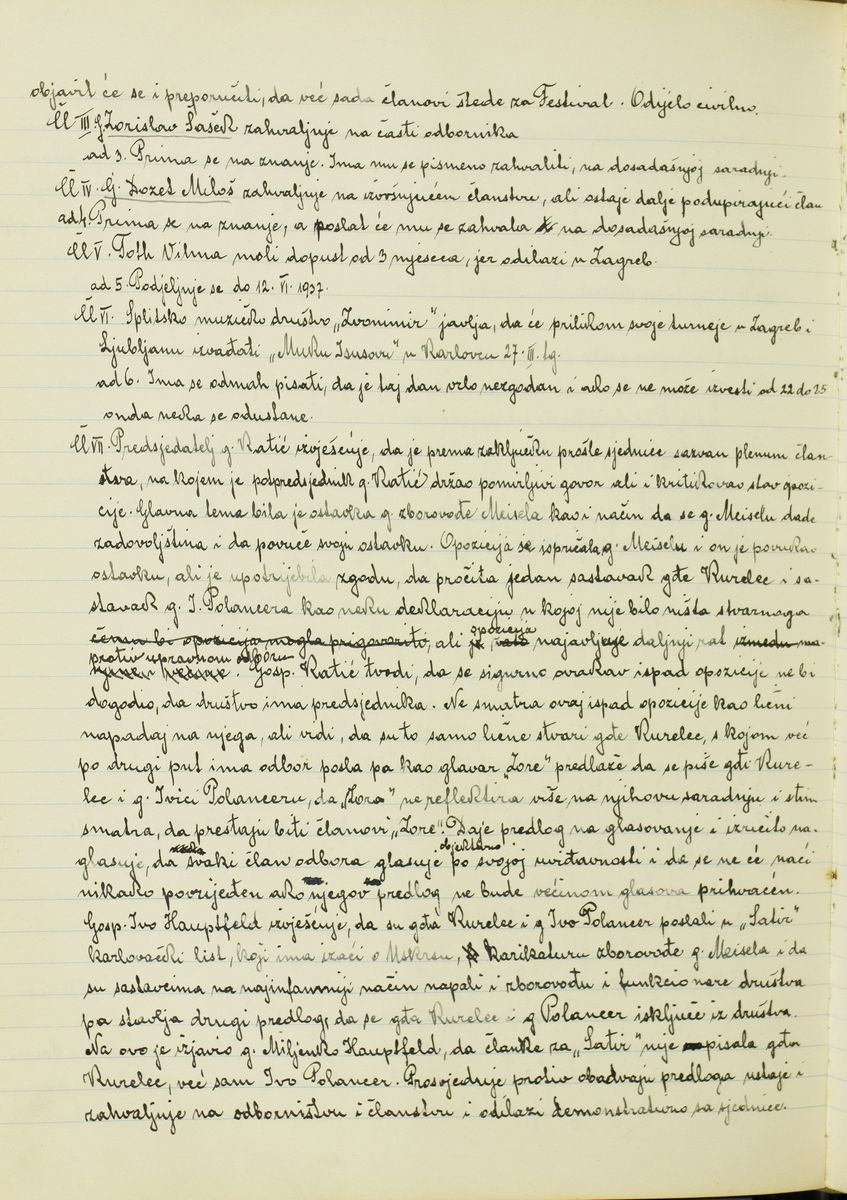 objavit će se i preporučiti, da već sada članovi štede za Festival. Odijelo civilno.
Čl III. g. Zorislav Lašek zahvaljuje na časti odbornika
ad 3. Prima se na znanje. Ima mu se pismeno zahvaliti, na dosadašnjoj saradnji.
Čl IV. G. Dozet Miloš zahvaljuje na izvršujućem članstvu, ali ostaje dalje podupirajući član
ad 4. Prima se na znanje, a poslat će mu se zahvala na dosadašnjoj saradnji.
Čl V. Toth Vilma moli dopust od 3 mjeseca, jer odilazi u Zagreb.
ad 5. Podjeljuje se do 12. VI. 1937.
Čl VI. Splitsko muzičko društvo „Zvonimir" javlja, da će prilikom svoje turneje u Zagreb i
Ljubljanu izvađati „Muku Isusovu" u Karlovcu 27. III. tg.
ad 6. Ima se odmah pisati, da je taj dan vrlo nezgodan i ako se ne može izvesti od 22 do 25
onda neka se odustane.
Čl VII. Predsjedatelj g. Katić izvješćuje, da je prema zaključku prošle sjednice sazvan plenum član-
stva, na kojem je potpredsjednik g. Katić držao pomirljivi govor ali i kritikovao stav opozi-
cije. Glavna tema bila je ostavka g. zborovođe Meisela kao i način da se g. Meiselu dade
zadovoljština i da povuče svoju ostavku. Opozicija se ispričala g. Meiselu i on je povukao
ostavku, ali je upotrijebila zgodu, da pročita jedan sastavak gđe Kurelec i sa-
stavak g. I. Polancera kao neku deklaraciju u kojoj nije bilo ništa stvarnoga
čemu bi opozicija mogla prigovoriti, ali je opozicija najavljuje daljnji rat između
protiv upravnom odboru. Gosp. Katić tvrdi, da se sigurno ovakav ispad opozicije ne bi
dogodio, da društvo ima predsjednika. Ne smatra ovaj ispad opozicije kao lični
napadaj na njega, ali vidi, da su to samo lične stvari gđe Kurelec, s kojom već
po drugi put ima odbor posla pa kao glavar „Zore" predlaže da se piše gđi Kure-
lec i g. Ivici Polanceru, da „Zora" ne reflektira više na njihovu saradnju i stim
smatra, da prestaju biti članovi „Zore". Daje predlog na glasovanje i izručito na-
glasuje, da svaki član odbora glasuje objektivno po svojoj uviđavnosti i da se ne će naći
nikako povrijeđen ako njegov predlog ne bude većinom glasova prihvaćen.
Gosp. Ivo Hauptfeld izvješćuje, da su gđa Kurelec i g Ivo Polancer poslali u „Satir"
karlovački list, koji ima izaći o Uskrsu, karikaturu zborovođe g. Meisela i da
su sastavcima na najinfamniji način napali i zborovođu i funkcionare društva
pa stavlja drugi predlog, da se gđa Kurelec i g Polancer isključe iz društva.
Na ovo je izjavio g. Miljenko Hauptfeld, da članke za „Satir" nije pisala gđa
Kurelec, već sam Ivo Polancer. Prosvjeduje protiv obadvaju predloga ustaje i
zahvaljuje na odborništvu i članstvu i odilazi demonstrativno sa sjednice.